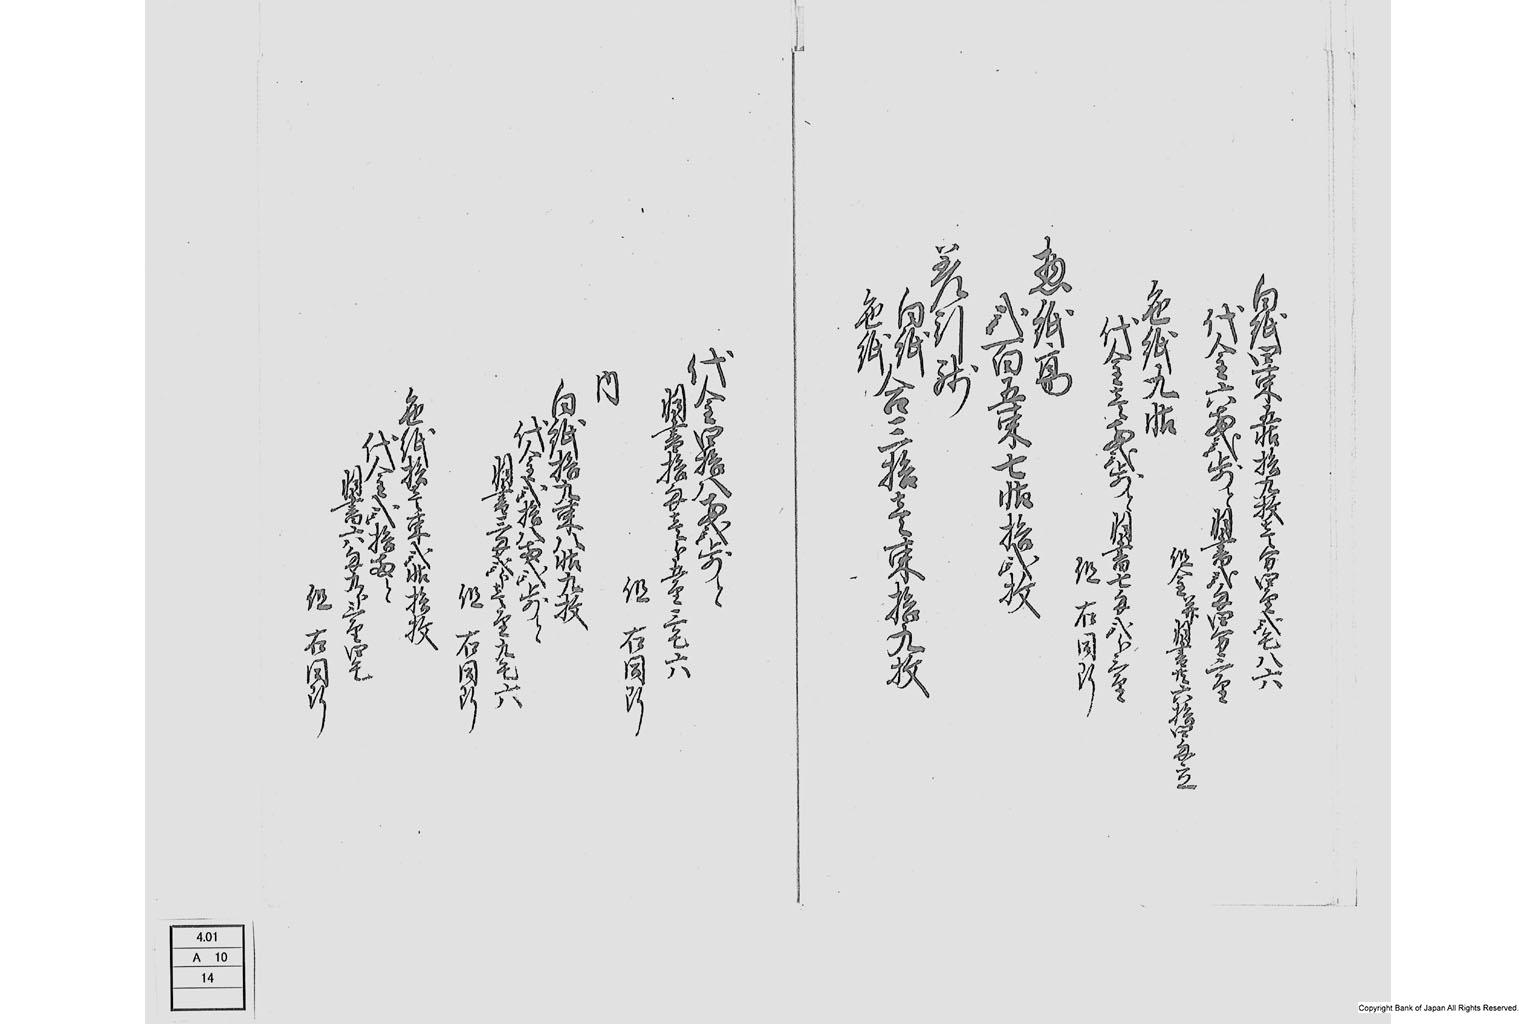 白紙四束五帖拾九枚壱分四厘弐毛八六
代金六両弐歩ト 銀壱匁四分三厘
色紙九帖
代金壱両弐歩ト 銀七匁弐分三厘
但 右同断
惣紙高
弐百五束七帖拾弐枚
差引残
白紙
色紙
合三拾壱束拾九枚
代金四拾八両弐歩ト
銀拾匁壱分五厘三毛六
但 右同断
内
白紙拾九束八帖九枚
代金弐拾八両弐歩ト
銀三匁弐分壱厘九毛六
但 右同断
色紙拾壱束弐帖拾枚
代金弐拾両ト
銀六匁九分三厘四毛
但 右同断
4.01
A 10
14
Copyright Bank of Japan All Rights Reserved.